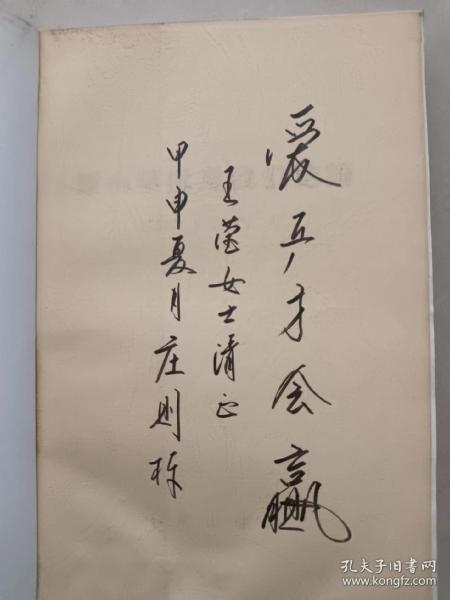 爱乒才会赢
王莹女士清正
甲申夏月 庄则栋
孔夫子旧书网
www.kongfz.com